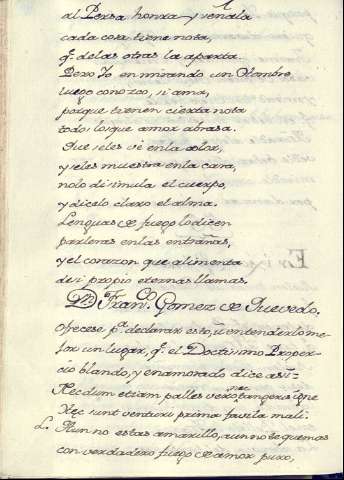 al Persa honra, y señala
cada cosa tiene nota,
q. delas otras la aparta.
Pero Yo en mirando un Hombre
luego conozco, si ama,
porque tienen cierta nota
todos los que amor abrasa.
Que seles vè enla color,
y seles muestra enla cara,
nolo disimula el cuerpo,
y dicelo claro el alma.
Lenguas de fuego lo dicen
parleras enlas entrañas,
y el corazon que alimenta
desi propio eternas llamas.
D. Fran.co Gomez de Quevedo,
Ofrecese p.a declarar esto, ù entenderlo me-
jor un lugar, q. el Doctisimo Proper-
cio blando, y enamorado dice asi:
Necdum etiam palles vero nec tangeris igne
Hęc sunt venturi prima favila mali.
Aun no estas amarillo, aun no te quemas
con verdadero fuego de amor puro,